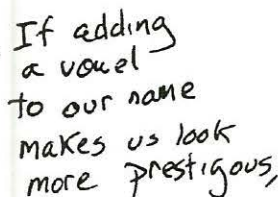 If adding
a vowel
to our name
makes us look
more prestigous,